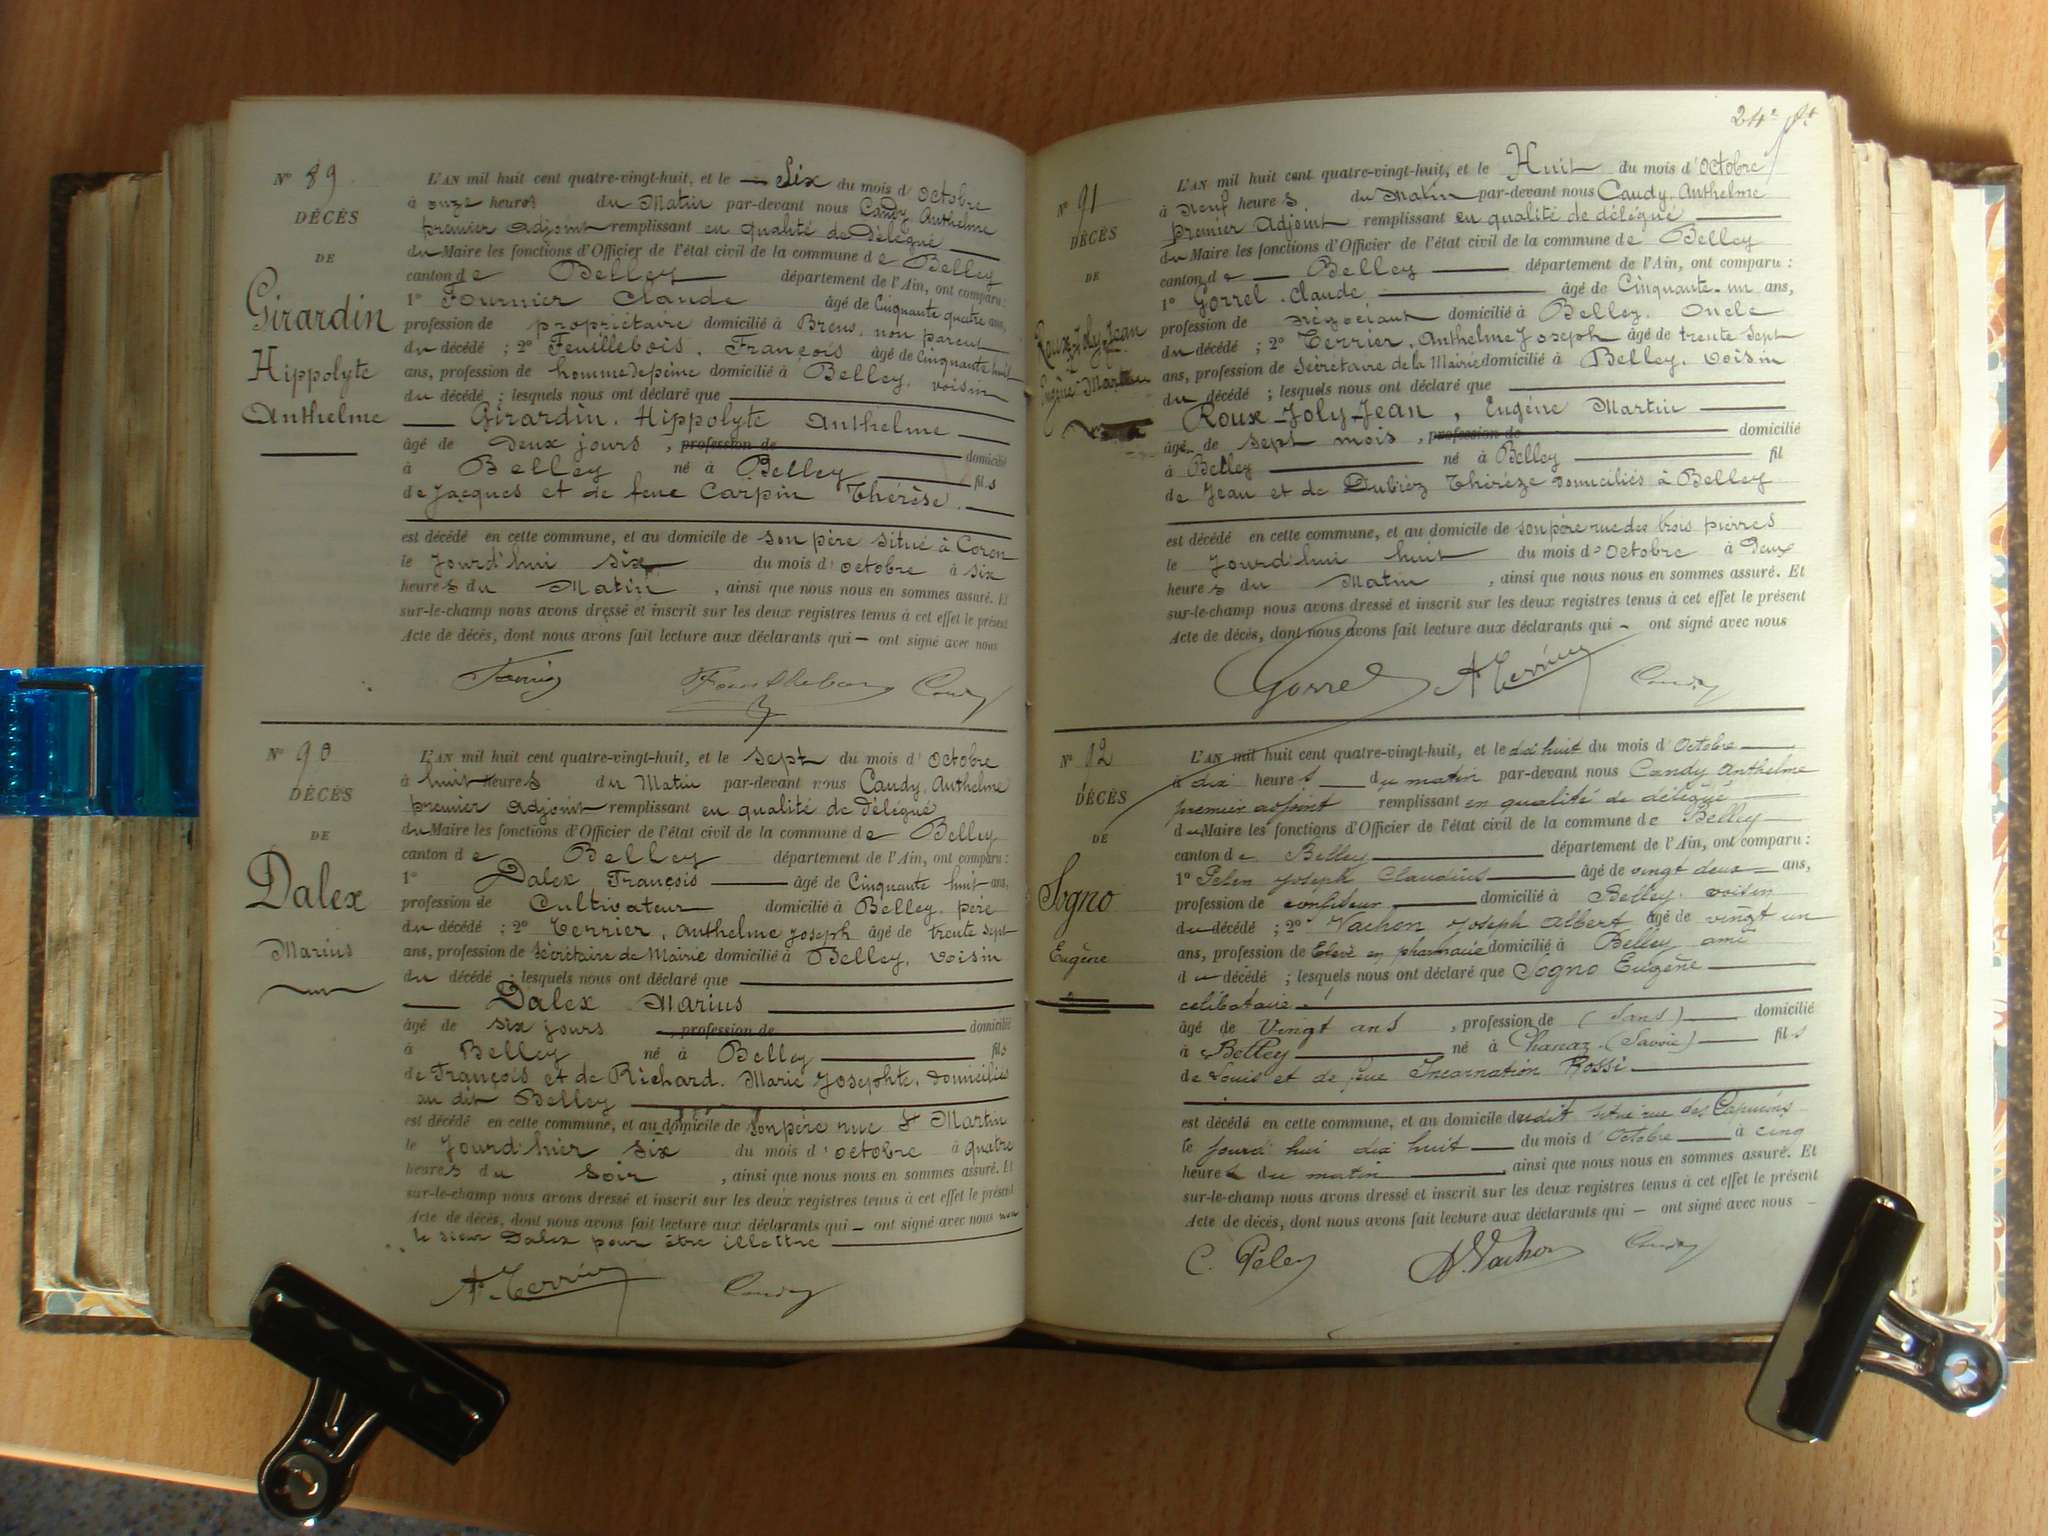 N° 89
DÉCÈS
DE
Girardin
Hippolyte
Anthelme
L'AN mil huit cent quatre-vingt-huit, et le — Six du mois d'octobre
à onze heures du Matin par-devant nous Candy, Anthelme
premier adjoint remplissant en qualité de Délégué
du Maire les fonctions d'Officier de l'état civil de la commune de Belley
canton de Belley département de l'Ain, ont comparu :
1° Fournier Claude âgé de Cinquante quatre ans,
profession de propriétaire domicilié à Brens, non parent
du décédé ; 2° Feuillebois, François âgé de cinquante huit
ans, profession de homme de peine domicilié à Belley, voisin
du décédé ; lesquels nous ont déclaré que
Girardin, Hippolyte Anthelme
âgé de Deux jours, profession de domicilié
à Belley né à Belley fils
de Jacques et de feue Carpin Thérèse.
est décédé en cette commune, et au domicile de son père situé à Coron
le Jourd'hui six du mois d'octobre à six
heures du Matin, ainsi que nous nous en sommes assuré. Et
sur-le-champ nous avons dressé et inscrit sur les deux registres tenus à cet effet le présent
Acte de décès, dont nous avons fait lecture aux déclarants qui — ont signé avec nous
Candy
N° 90
DÉCÈS
DE
Dalex
Marius
L'AN mil huit cent quatre-vingt-huit, et le sept du mois d'octobre
à huit heures du Matin par-devant nous Candy, Anthelme
premier adjoint remplissant en qualité de Délégué
du Maire les fonctions d'Officier de l'état civil de la commune de Belley
canton de Belley département de l'Ain, ont comparu :
1° Dalex François âgé de Cinquante huit ans,
profession de Cultivateur domicilié à Belley, père
du décédé ; 2° Terrier, Anthelme Joseph âgé de trente sept
ans, profession de Secrétaire de Mairie domicilié à Belley, voisin
du décédé ; lesquels nous ont déclaré que
Dalex Marius
âgé de six jours, profession de domicilié
à Belley né à Belley fils
de François et de Richard, Marie Josephte, domiciliés
au dit Belley
est décédé en cette commune, et au domicile de son père rue St Martin
le Jourd'hier six du mois d'octobre à quatre
heures du Soir, ainsi que nous nous en sommes assuré. Et
sur-le-champ nous avons dressé et inscrit sur les deux registres tenus à cet effet le présent
Acte de décès, dont nous avons fait lecture aux déclarants qui — ont signé avec nous non
le sieur Dalex pour être illettré
A. Terrier Candy
24e ft
N° 91
DÉCÈS
DE
Roux-Joly-Jean
Eugène Martin
L'AN mil huit cent quatre-vingt-huit, et le Huit du mois d'octobre
à Neuf heures du Matin par-devant nous Candy, Anthelme
premier Adjoint remplissant en qualité de délégué
du Maire les fonctions d'Officier de l'état civil de la commune de Belley
canton de Belley département de l'Ain, ont comparu :
1° Gorrel, Claude âgé de Cinquante-un ans,
profession de Négociant domicilié à Belley, Oncle
du décédé ; 2° Terrier, Anthelme Joseph âgé de trente sept
ans, profession de Secrétaire de la Mairie domicilié à Belley, voisin
du décédé ; lesquels nous ont déclaré que
Roux-Joly-Jean, Eugène Martin
âgé de sept mois, profession de domicilié
à Belley né à Belley fil
de Jean et de Dubiez Thérèze domiciliés à Belley
est décédé en cette commune, et au domicile de son père rue des trois pierres
le Jourd'hui huit du mois d'octobre à Deux
heures du Matin, ainsi que nous nous en sommes assuré. Et
sur-le-champ nous avons dressé et inscrit sur les deux registres tenus à cet effet le présent
Acte de décès, dont nous avons fait lecture aux déclarants qui — ont signé avec nous
Gorrel A. Terrier Candy
N° 92
DÉCÈS
DE
Sogno
Eugène
L'AN mil huit cent quatre-vingt-huit, et le dix huit du mois d'Octobre
à dix heures du matin par-devant nous Candy Anthelme
premier adjoint remplissant en qualité de délégué
du Maire les fonctions d'Officier de l'état civil de la commune de Belley
canton de Belley département de l'Ain, ont comparu :
1° Pelen Joseph Claudius âgé de vingt deux ans,
profession de confiseur domicilié à Belley, voisin
du décédé ; 2° Vachon Joseph Albert âgé de vingt un
ans, profession de Elève en pharmacie domicilié à Belley ami
du décédé ; lesquels nous ont déclaré que Sogno Eugène
célibataire
âgé de Vingt ans, profession de (Sans) domicilié
à Belley né à Chanaz (Savoie) fils
de Louis et de feue Incarnation Rossi
est décédé en cette commune, et au domicile dudit situé rue des Capucins
le jourd'hui dix huit du mois d'Octobre à cinq
heures du matin, ainsi que nous nous en sommes assuré. Et
sur-le-champ nous avons dressé et inscrit sur les deux registres tenus à cet effet le présent
Acte de décès, dont nous avons fait lecture aux déclarants qui — ont signé avec nous
C. Pelen A. Vachon Candy